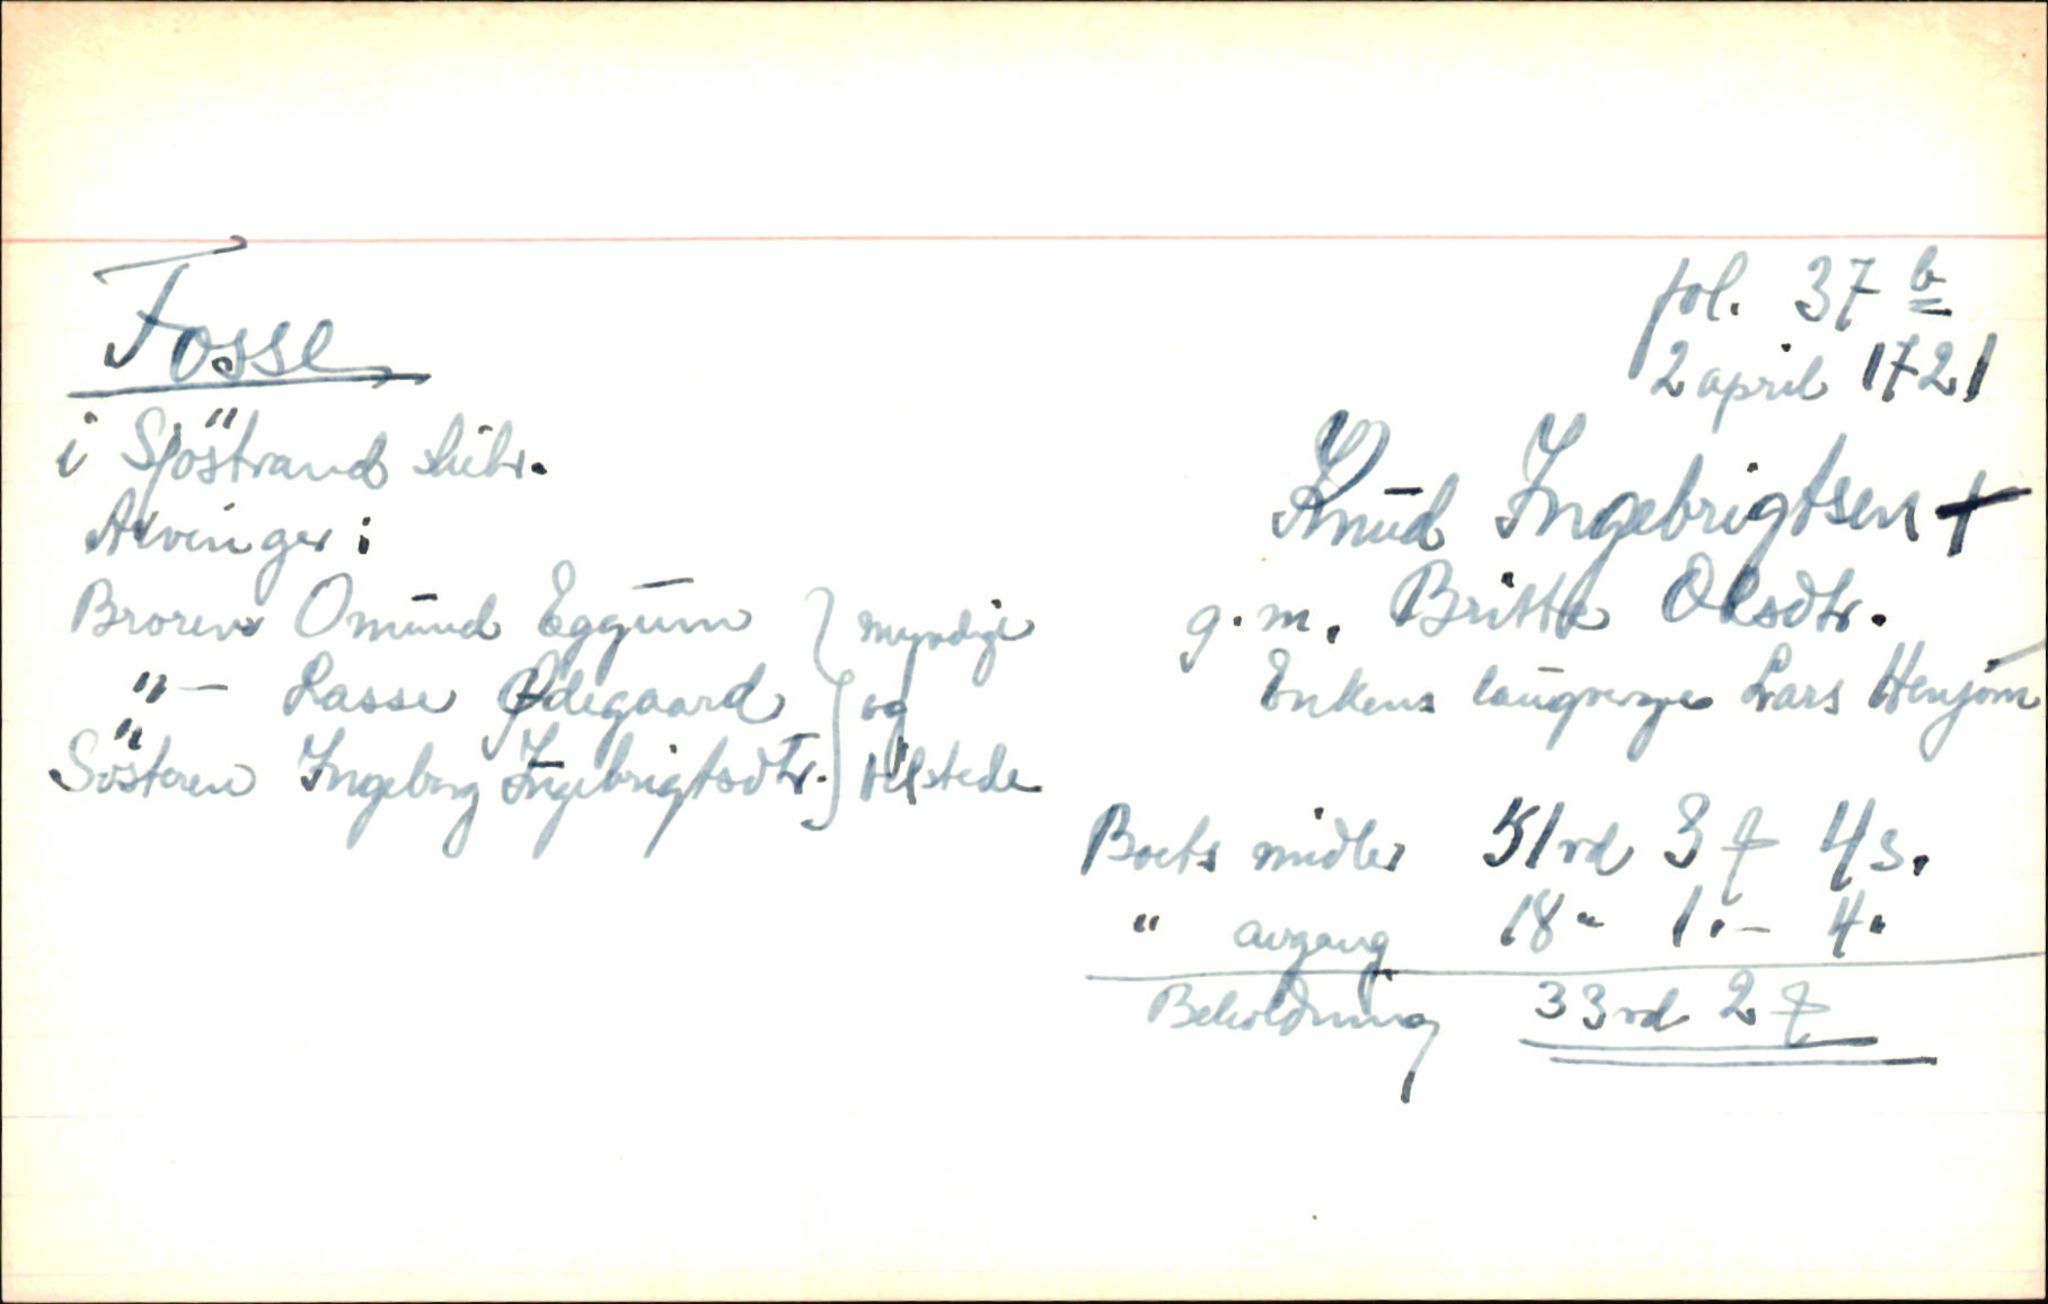 Fosse
i Sjöstrand skibr.
Arvinger:
Broren Omund Eggum } myndige
"— Lasse Ødegaard } og
Sösteren Ingeborg Ingebrigtsdtr. } tilstede
fol. 37 b
2 april 1721
Knud Ingebrigtsen +
g.m. Britta Olsdtr.
Enkens laugverge Lars Henjum
Boets midler 51 rd 3 ƒ 4 s.
" avgang 18 " 1 .- 4 .
Beholdning 33 rd 2 ƒ